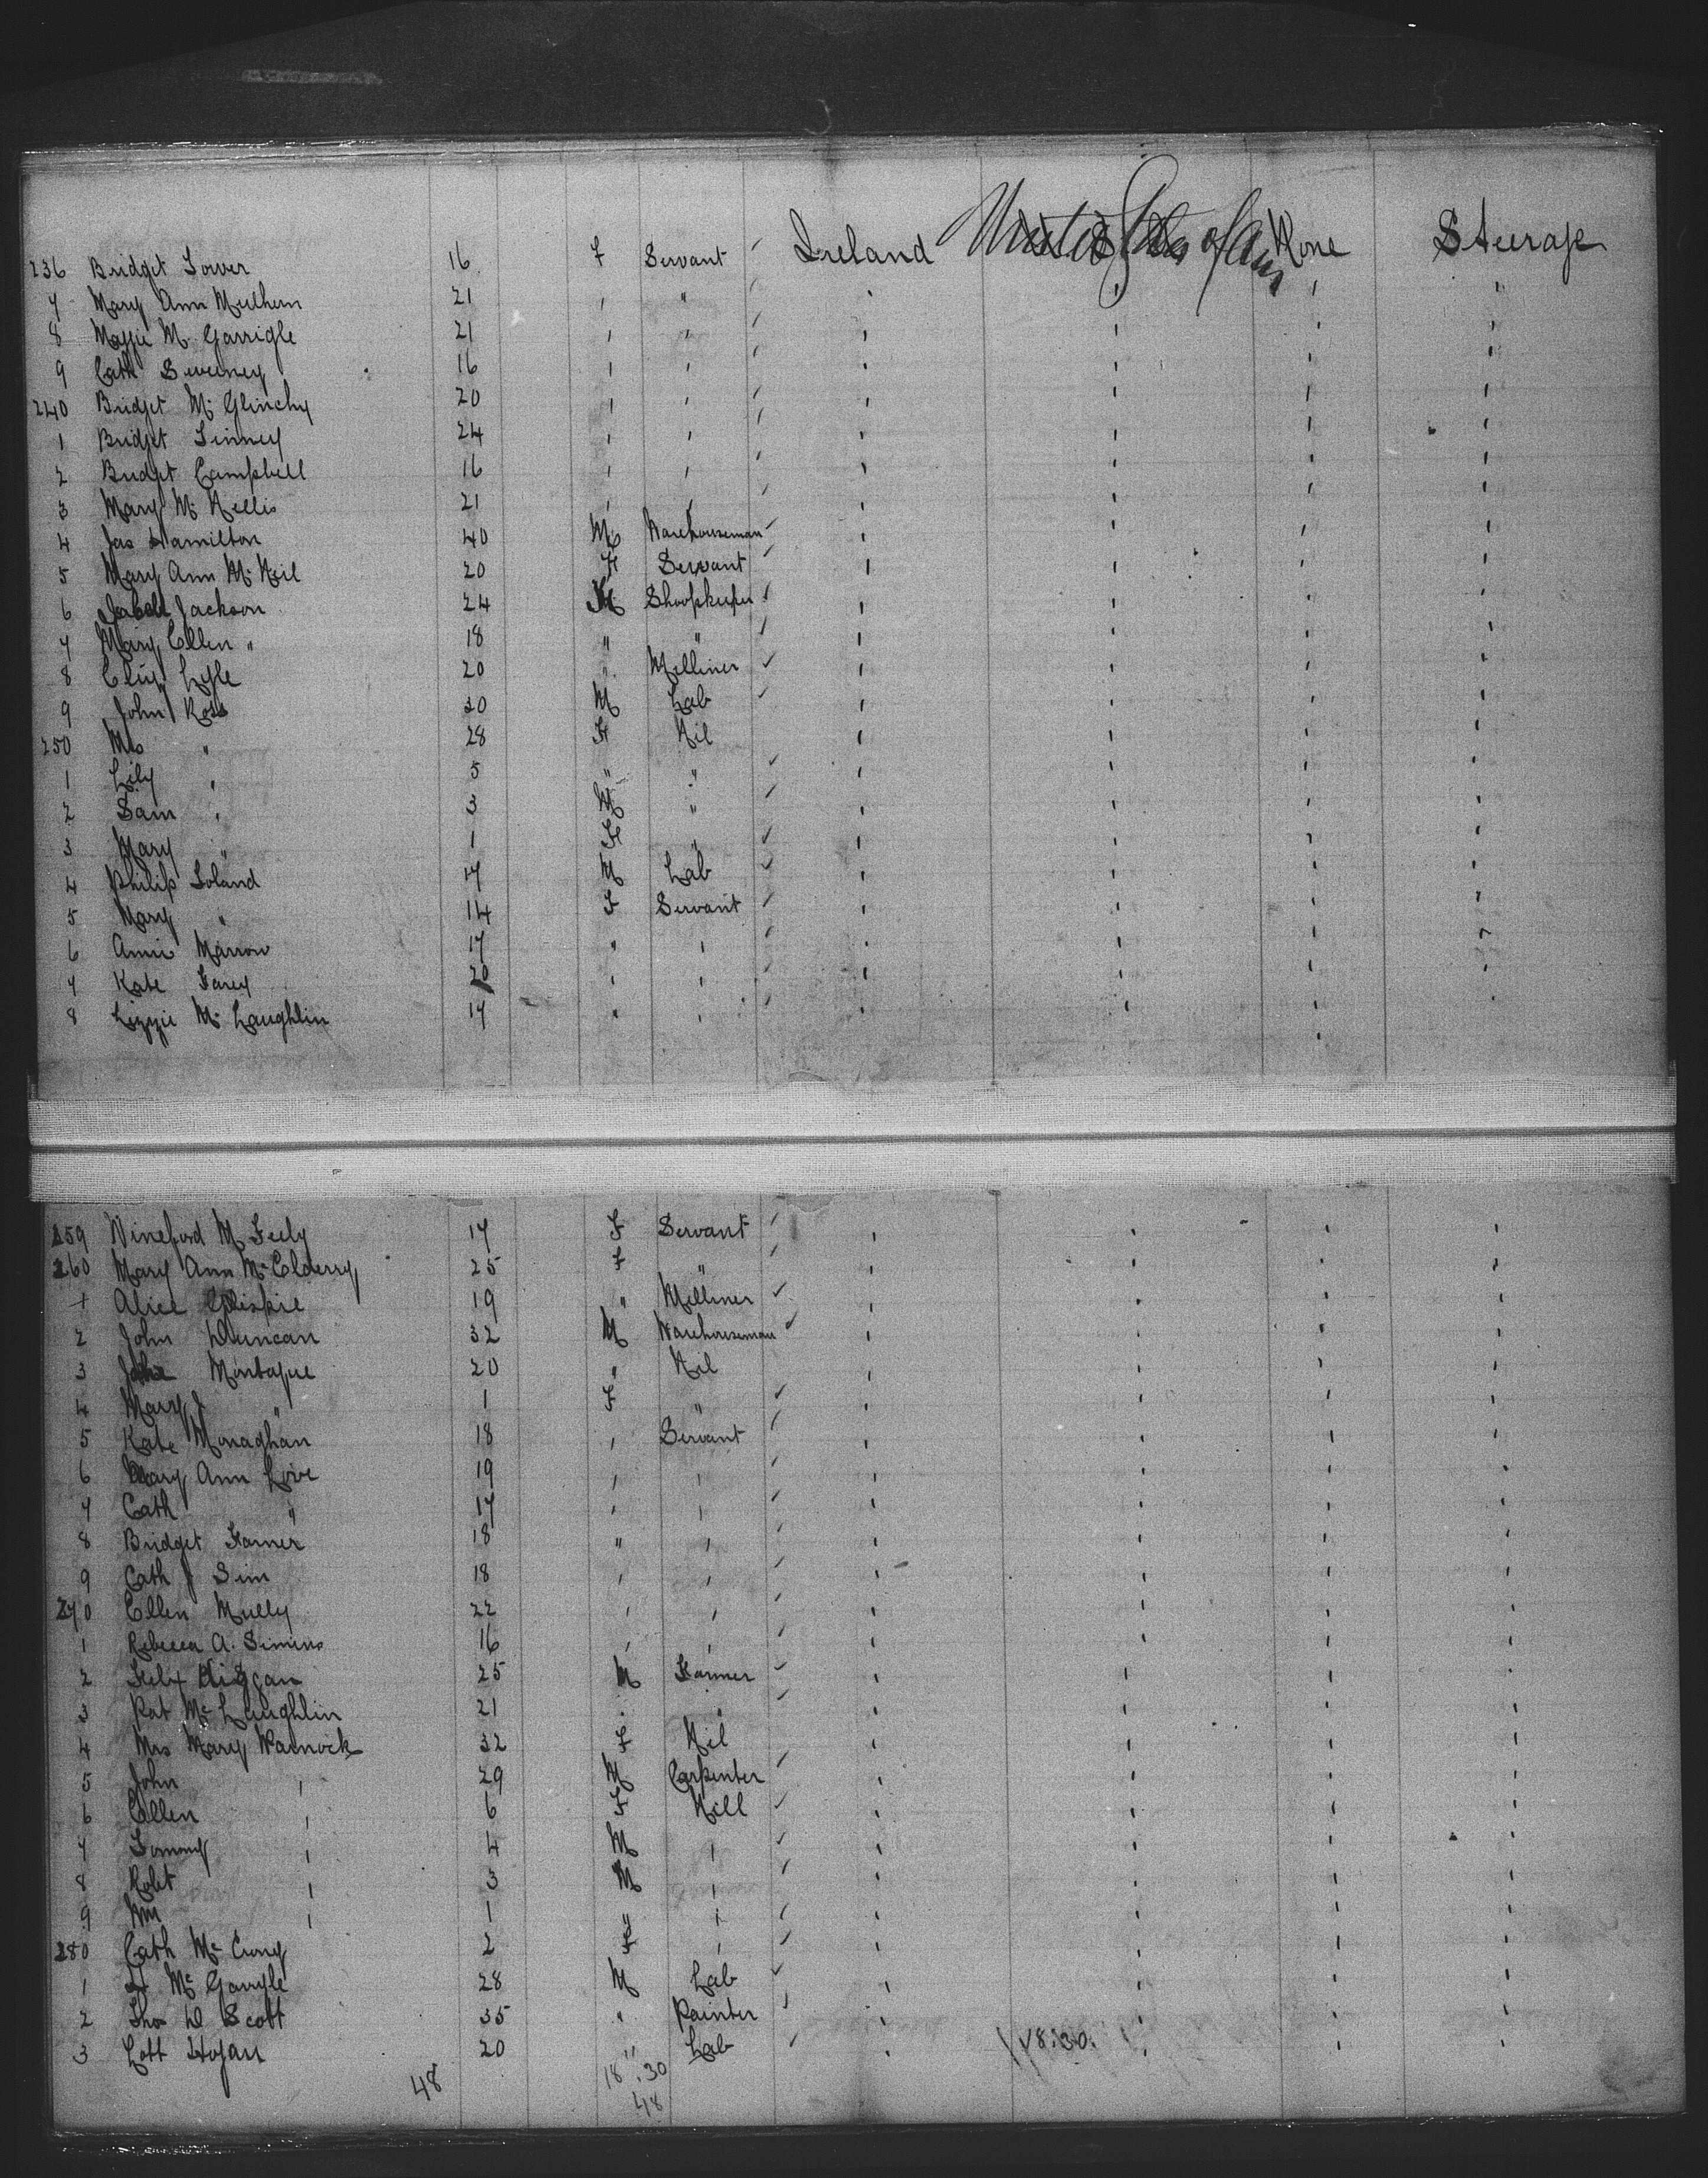 236 Bridget Tower 16 F Servant ✓ Ireland United States of Am None Steerage
7 Mary Ann Mulhern 21 " " ✓ " " " "
8 Maggie Mc Garrigle 21 " " ✓ " " " "
9 Cath Sweeney 16 " " ✓ " " " "
240 Bridget Mc Glinchy 20 " " ✓ " " " "
1 Bridget Finney 24 " " ✓ " " " "
2 Bridget Campbell 16 " " ✓ " " " "
3 Mary Mc Nellis 21 " " ✓ " " " "
4 Jas Hamilton 40 M Warehouseman ✓ " " " "
5 Mary Ann Mc Neil 20 F Servant ✓ " " " "
6 Jackson 24 Shoopkeeper ✓ " " " "
7 Mary Ellen " 18 " " ✓ " " " "
8 Lyle 20 " Milliner ✓ " " " "
9 John Ross 30 M Lab ✓ " " " "
250 Mrs " 28 F Nil " " " "
1 Lily " 5 " " ✓ " " " "
2 Sam " 3 M " ✓ " " " "
3 Mary " 1 F " ✓ " " " "
4 Philip Toland 17 M Lab ✓ " " " "
5 Mary " 14 F Servant ✓ " " " "
6 Annie Marrow 17 " " ✓ " " " "
7 Kate 20 " " ✓ " " " "
8 Lizzie Mc Laughlin 17 " " ✓ " " " "
259 Wineford Mc Feely 17 F Servant ✓ " " " "
260 Mary Ann Mc Elderry 25 F " ✓ " " " "
1 Alice Gillispie 19 " Milliner ✓ " " " "
2 John Duncan 32 M Warehouseman ✓ " " " "
3 Montague 20 " Nil " " " "
4 Mary J " 1 F " ✓ " " " "
5 Kate Monaghan 18 " Servant ✓ " " " "
6 Mary Ann Love 19 " " ✓ " " " "
7 Cath " 17 " " ✓ " " " "
8 Bridget Farner 18 " " ✓ " " " "
9 Cath J Sim 18 " " ✓ " " " "
270 Ellen Mully 22 " " ✓ " " " "
1 Rebecca A. Simms 16 " " ✓ " " " "
2 Felix 25 M Farmer ✓ " " " "
3 Pat Mc Laughlin 21 " " ✓ " " " "
4 Mrs Mary Warnock 32 F Nil " " " "
5 John " 29 M Carpenter ✓ " " " "
6 Ellen " 6 F Nill ✓ " " " "
7 Tommy " 4 M " ✓ " " " "
8 Robt " 3 M " ✓ " " " "
9 Wm " 1 " " ✓ " " " "
280 Cath Mc Crory 2 F " ✓ " " " "
1 Mc Garrigle 28 M Lab ✓ " " " "
2 Thos D Scott 35 " Painter ✓ " " " "
3 Lott Hogan 20 " Lab ✓ " " " "
48 18.30 48